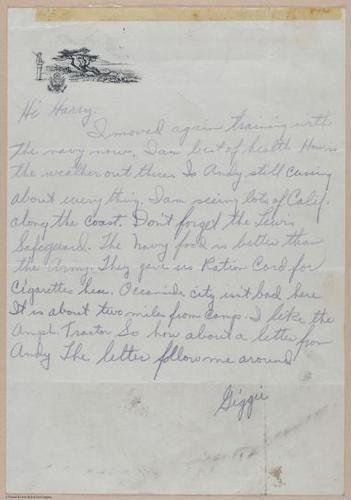 Hi Harry.
I moved again training with
the navy now. I am best of health How is
the weather out there. Is Andy still cussing
about everything. I am seeing lots of Calif.
along the coast. Don't forget the Lewis
Safeguard. The Navy food is better than
the Army. They gave us Ration Card for
Cigarettes here. Oceanside city isn't bad here
It is about two miles from Camp. I like the
Amph. Tractor So how about a letter from
Andy The letter follow me around
Giggie